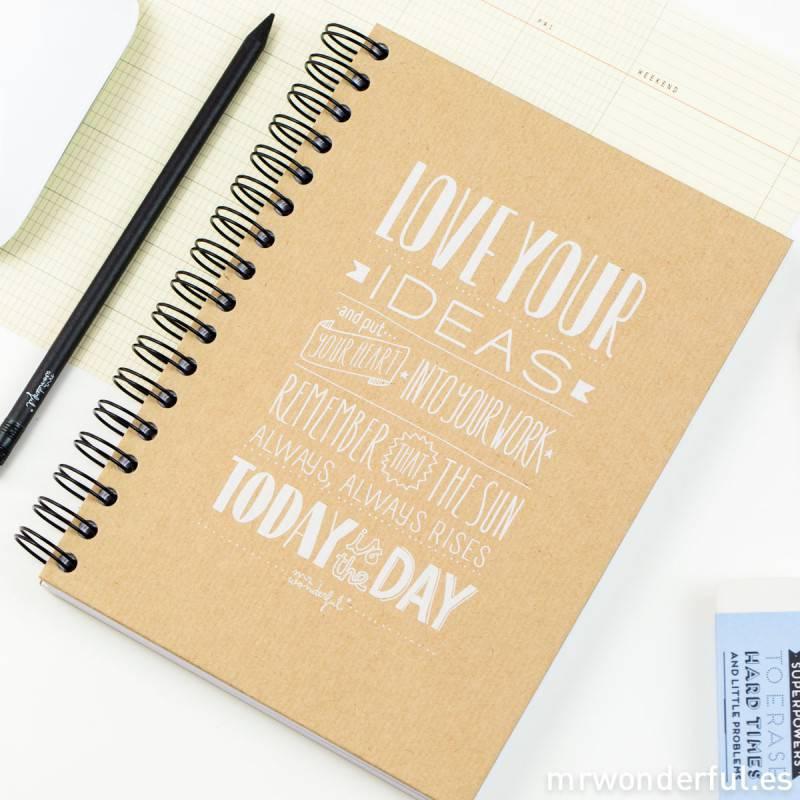 PM!
WEEKEND
LOVE YOUR
IDEAS
and put...
YOUR HEART INTO YOUR WORK
REMEMBER THAT THE SUN
ALWAYS, ALWAYS RISES
TODAY is the DAY
mr. wonderful*
mr. wonderful*
SUPERPOWERS
TO ERASE
HARD TIMES
AND LITTLE PROBLEMS
mrwonderful.es